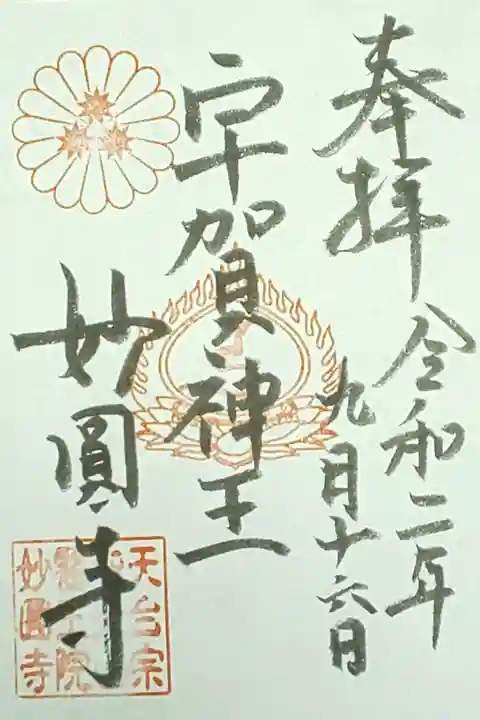 奉拝
令和二年
九月十六日
宇賀神王
妙圓寺
天台宗
院
妙圓寺